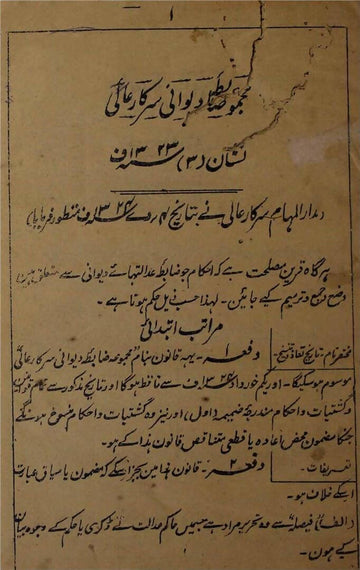 ۱
مجموعہ ضابطہ دیوانی سرکار عالی
نشان (۳) ۱۳۲۳ف
مدار المہام سرکار عالی نے بتاریخ دے ۱۳۲۴ف منظور فرمایا)
ہر گاہ قرین مصلحت ہے کہ احکام جو ضابطہ عدالتہائے دیوانی سے متعلق ہیں
وضع و جمع و ترمیم کیے جائیں۔ لہذا حسب ذیل حکم ہوتا ہے۔
مراتب ابتدائی
مختصر نام۔ تاریخ نفاذ و تنسیخ۔ دفعہ ۱۔ یہہ قانون بنام مجموعہ ضابطہ دیوانی سرکار عالی
موسوم ہو سکیگا۔ اور یکم خورداد ۱۳۲۴ف سے نافذ ہوگا اور تاریخ مذکور سے تمام
و گشتیات و احکام مندرجہ ضمیمہ (اول) اور نیز وہ گشتیات و احکام منسوخ ہونگے
جنکا مضمون محض اعادہ یا قطعی متناقض قانون ہذا کے ہو۔
تعریفات۔ دفعہ ۲۔ قانون ہذا میں بجز اسکے کہ مضمون یا سیاق عبارت
اسکے خلاف ہو۔
(الف) "فیصلہ" سے وہ تحریر مراد ہے جسمیں حاکم عدالت نے ڈکری یا حکم کے وجوہ بیان
کیے ہوں۔